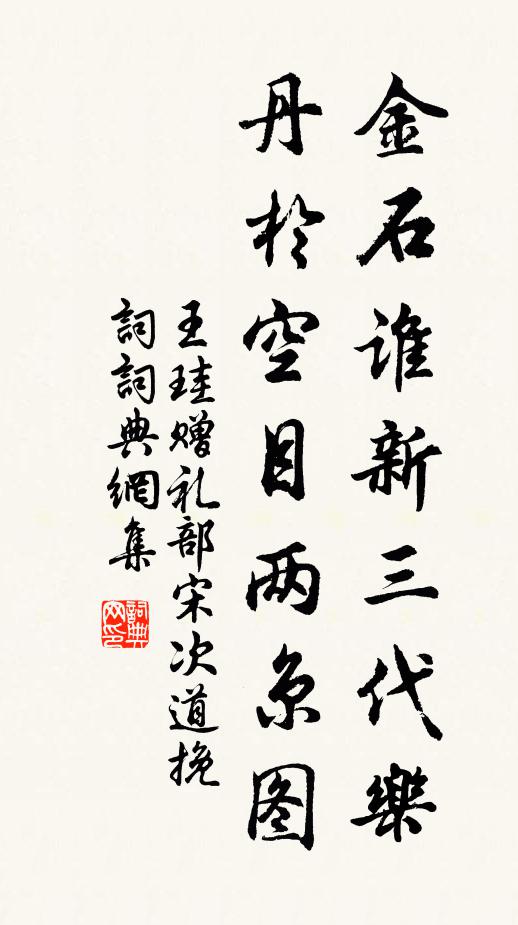 金石谁新三代樂
丹於空目两京图
王珪赠礼部宋次道挽
詞詞典網集
詞典网印